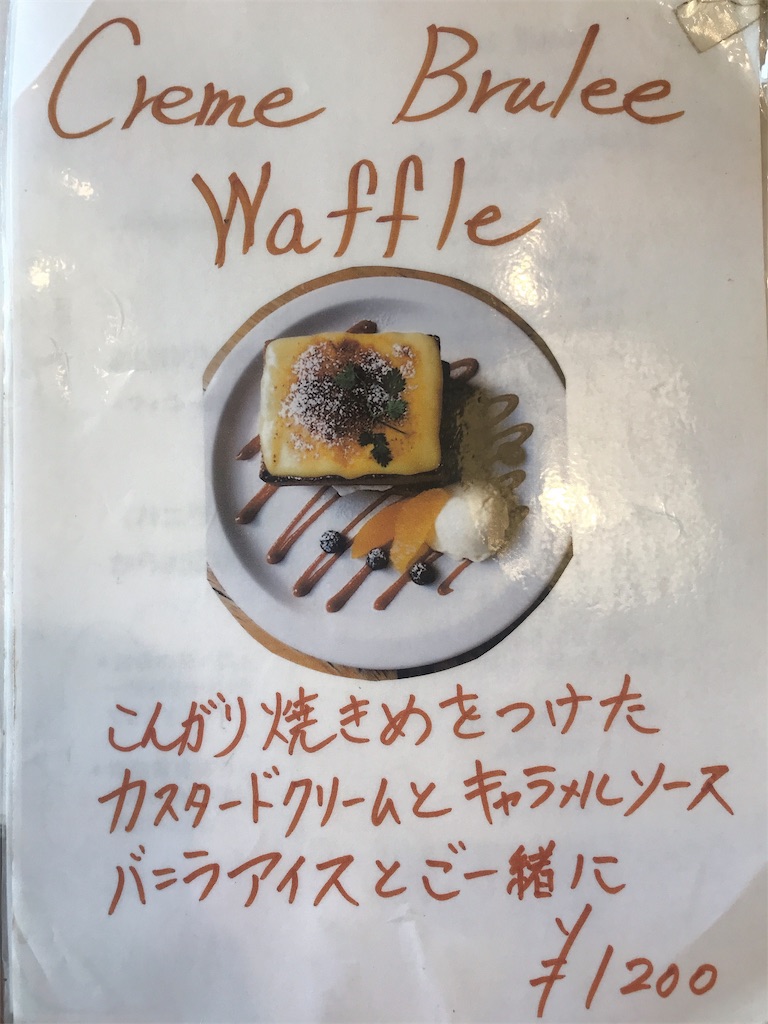 Creme Brulee
Waffle
こんがり焼きめをつけた
カスタードクリームとキャラメルソース
バニラアイスとご一緒に
¥1200